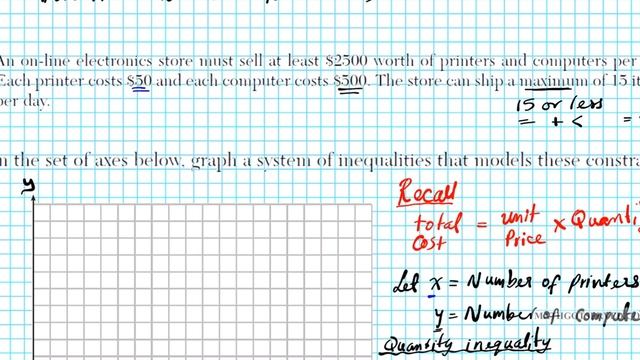 An on-line electronics store must sell at least $2500 worth of printers and computers per
Each printer costs $50 and each computer costs $500. The store can ship a maximum of 15
per day.
15 or less
= + <
=
n the set of axes below, graph a system of inequalities that models these
y
Recall
total Cost = unit Price x
Let x = Number of Printers
y = Number of
Quantity inequality